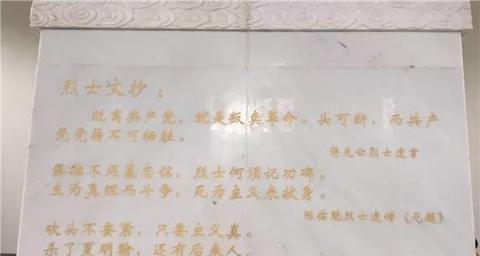 烈士文抄：
脱离共产党，就是叛卖革命。头可断，而共产
党党籍不可牺牲。
蒋先云烈士遗言
英雄不用墓后铭，烈士何须记功碑。
生为真理而斗争，死为主义来献身。
陈佑魁烈士遗诗《无题》
砍头不要紧，只要主义真。
杀了夏明翰，还有后来人。